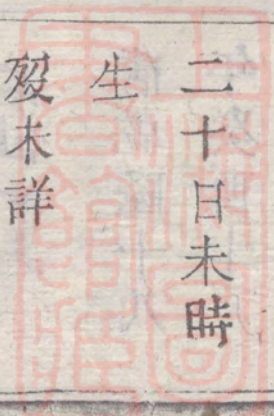 二十日未時
生
歿未詳